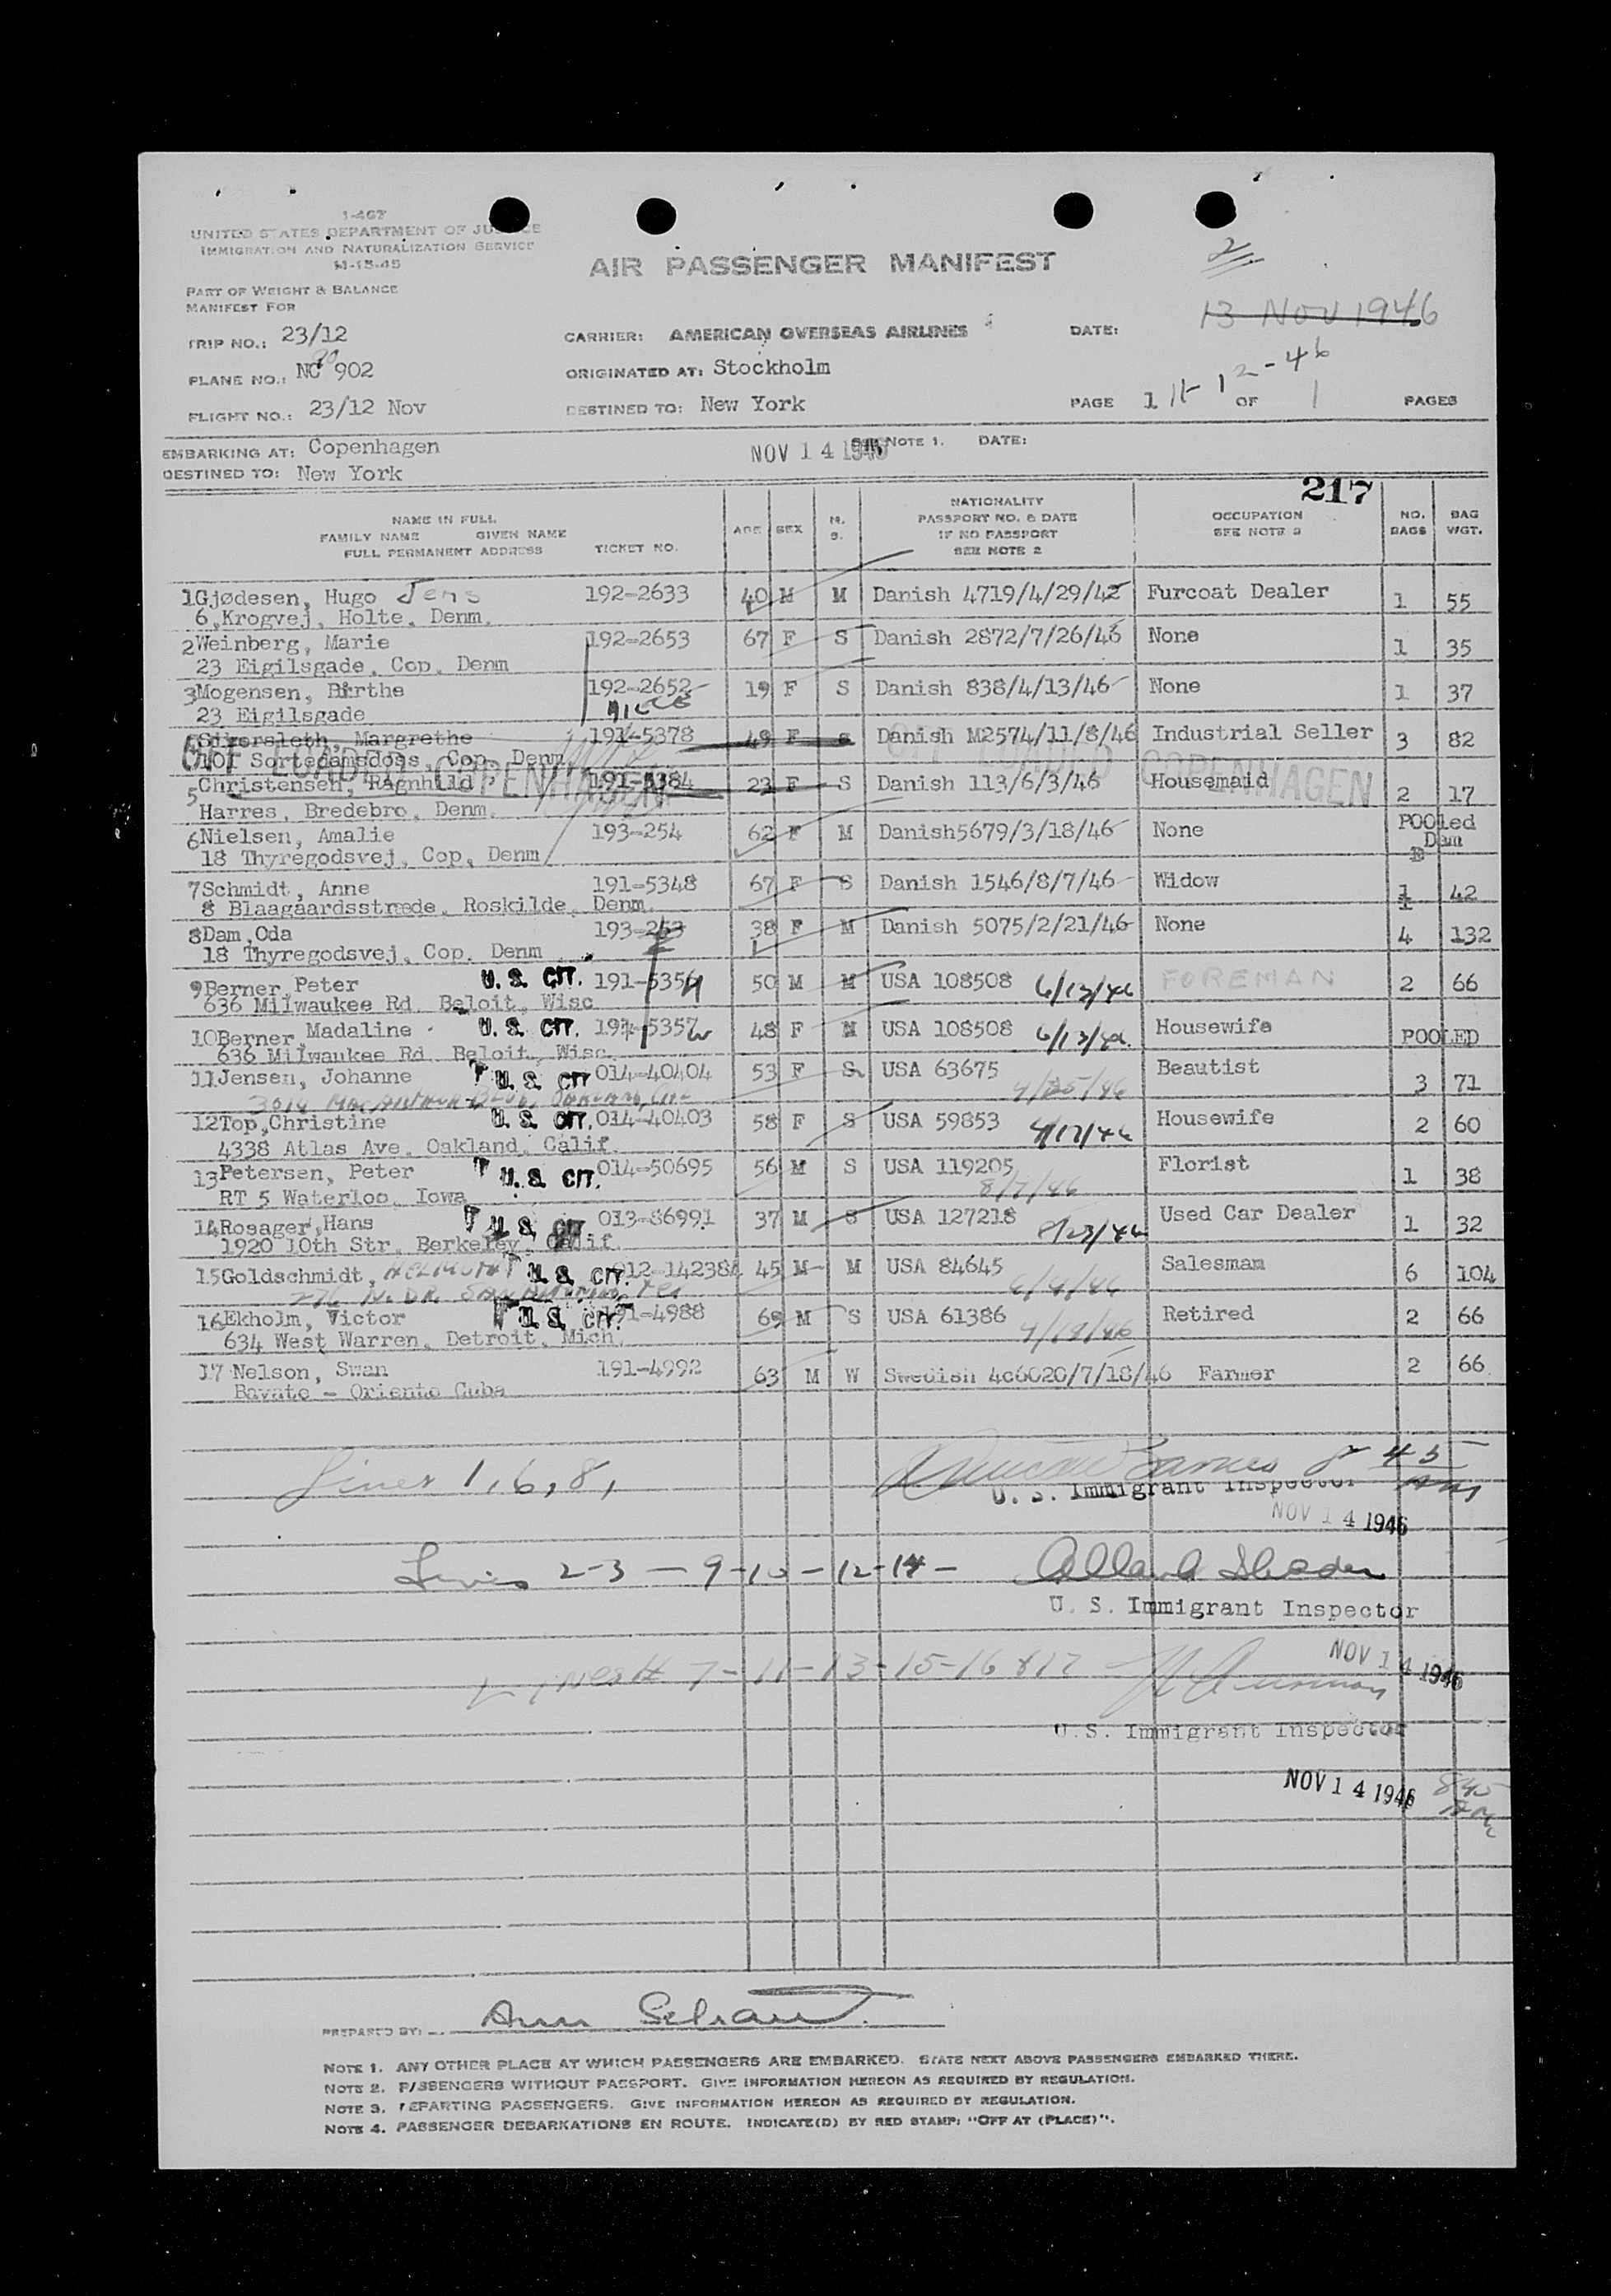 1-467
UNITED STATES DEPARTMENT OF JUSTICE
IMMIGRATION AND NATURALIZATION SERVICE
M-15-45
AIR PASSENGER MANIFEST
2
PART OF WEIGHT & BALANCE
MANIFEST FOR
13 NOV 1946
TRIP NO.: 23/12 CARRIER: AMERICAN OVERSEAS AIRLINES DATE:
PLANE NO.: NC 90 902 ORIGINATED AT: Stockholm
11-12-46
FLIGHT NO.: 23/12 Nov DESTINED TO: New York PAGE 1 OF 1 PAGES
EMBARKING AT: Copenhagen NOV 14 1946 SEE NOTE 1. DATE:
DESTINED TO: New York
217
NAME IN FULL
FAMILY NAME GIVEN NAME
FULL PERMANENT ADDRESS TICKET NO. AGE SEX M. S. NATIONALITY PASSPORT NO. & DATE IF NO PASSPORT SEE NOTE 2 OCCUPATION SEE NOTE 3 NO. BAGS BAG WGT.
1 Gjødesen, Hugo Jens 192-2633 40 M M Danish 4719/4/29/42 Furcoat Dealer 1 55
6, Krogvej, Holte, Denm.
2 Weinberg, Marie 192-2653 67 F S Danish 2872/7/26/46 None 1 35
23 Eigilsgade, Cop, Denm
3 Mogensen, Birthe 192-2652 19 F S Danish 838/4/13/46 None 1 37
23 Eigilsgade niece
Margrethe 191-5378 49 F S Danish M2574/11/8/46 Industrial Seller 3 82
101 Sortedamsdoss, Cop, Denm
OFF LOADED COPENHAGEN OFF LOADED COPENHAGEN
5 Christensen, Ragnhild 191-5384 23 F S Danish 113/6/3/46 Housemaid 2 17
Harres, Bredebro, Denm.
6 Nielsen, Amalie 193-254 62 F M Danish5679/3/18/46 None POOled Dam
18 Thyregodsvej, Cop, Denm
7 Schmidt, Anne 191-5348 67 F S Danish 1546/8/7/46 Widow 1 42
8 Blaagaardsstræde, Roskilde, Denm.
8 Dam, Oda 193-253 38 F M Danish 5075/2/21/46 None 4 132
18 Thyregodsvej, Cop, Denm
9 Berner, Peter U. S. CIT. 191-5356 50 M M USA 108508 6/13/46 FOREMAN 2 66
636 Milwaukee Rd. Beloit, Wisc
10 Berner, Madaline U. S. CIT. 191-5357 48 F M USA 108508 6/13/46 Housewife POOLED
636 Milwaukee Rd. Beloit, Wisc.
11 Jensen, Johanne U. S. CIT 014-40404 53 F S USA 63675 4/25/46 Beautist 3 71
12 Top, Christine U. S. CIT. 014-40403 58 F S USA 59853 4/17/46 Housewife 2 60
4338 Atlas Ave. Oakland, Calif.
13 Petersen, Peter U. S. CIT. 014-50695 56 M S USA 119205 8/7/46 Florist 1 38
RT 5 Waterloo, Iowa
14 Rosager, Hans U. S. CIT 013-86991 37 M S USA 127218 8/23/46 Used Car Dealer 1 32
1920 10th Str. Berkeley, Calif.
15 Goldschmidt, HELMUTH U. S. CIT. 012-142384 45 M M USA 84645 6/4/46 Salesman 6 104
16 Ekholm, Victor U. S. CIT. 191-4988 69 M S USA 61386 4/19/46 Retired 2 66
634 West Warren, Detroit, Mich.
17 Nelson, Swan 191-4992 63 M W Swedish 4c6020/7/18/46 Farmer 2 66
Bayate - Oriente Cuba
Lines 1, 6, 8,
U. S. Immigrant Inspector
NOV 14 1946
Lines 2-3 - 9-10 - 12-14 -
U. S. Immigrant Inspector
NOV 14 1946
Lines # 7-11-13-15-16 & 17
U.S. Immigrant Inspector
NOV 14 1946
PREPARED BY:
NOTE 1. ANY OTHER PLACE AT WHICH PASSENGERS ARE EMBARKED. STATE NEXT ABOVE PASSENGERS EMBARKED THERE.
NOTE 2. PASSENGERS WITHOUT PASSPORT. GIVE INFORMATION HEREON AS REQUIRED BY REGULATION.
NOTE 3. DEPARTING PASSENGERS. GIVE INFORMATION HEREON AS REQUIRED BY REGULATION.
NOTE 4. PASSENGER DEBARKATIONS EN ROUTE. INDICATE(D) BY RED STAMP: "OFF AT (PLACE)".